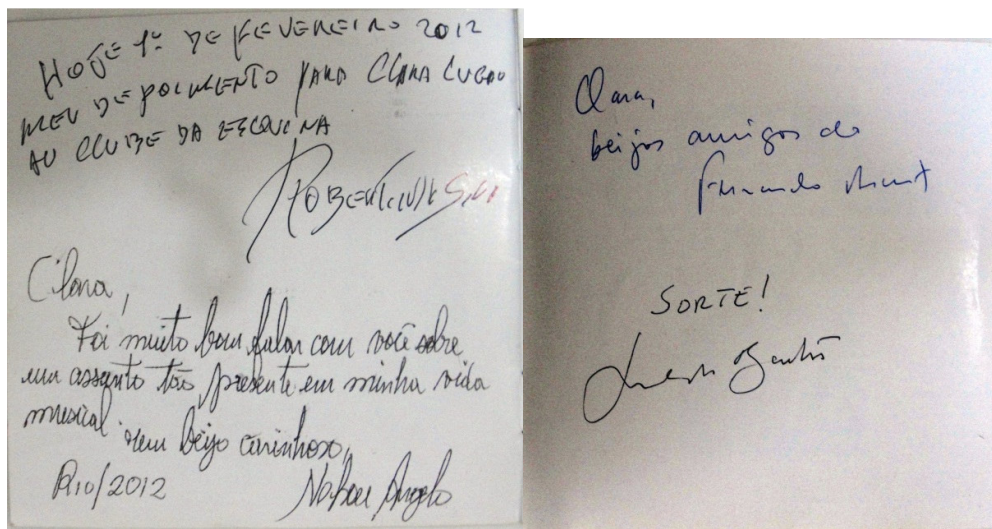 HOJE 1º DE FEVEREIRO 2012
MEU DEPOIMENTO PARA CLARA LUGÃO
AO CLUBE DA ESQUINA
ROBERTINHO SILVA
Clara,
Foi muito bom falar com você sobre
um assunto tão presente em minha vida
musical. um beijo carinhoso,
Rio/2012 Nelson Angelo
Clara,
beijos amigos do
Fernando Brant
SORTE!